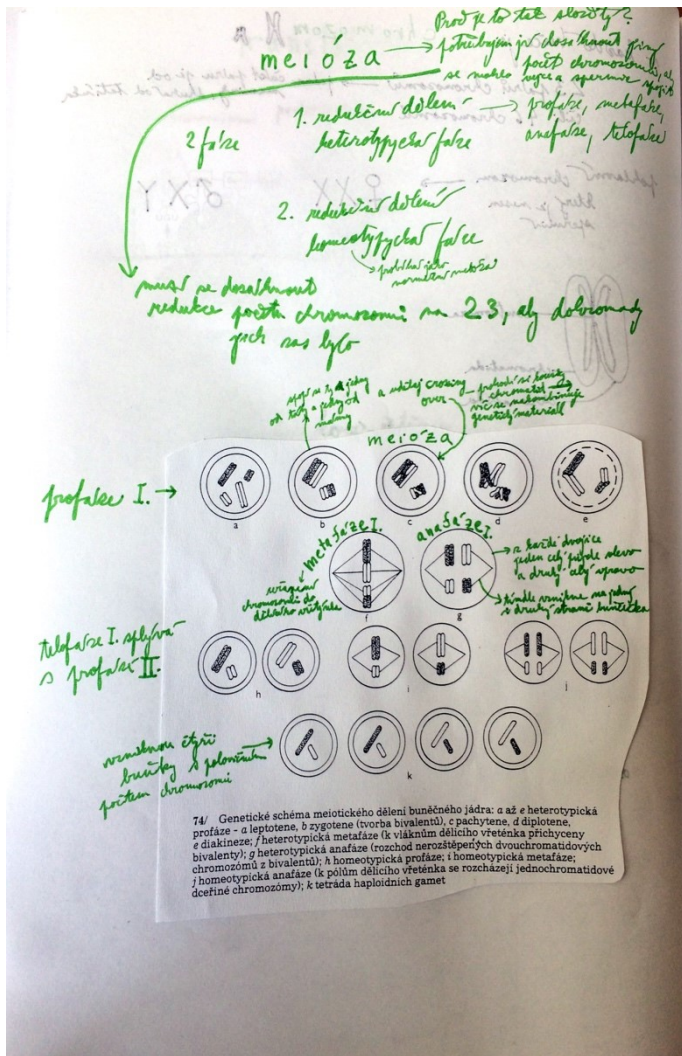 Proč je to tak složitý?
meióza
potřebujem jí dosáhnout
počet chromozomů, aby
se mohlo vejce a spermie spojit
1. redukční dělení
heterotypická fáze
profáze, metafáze,
anafáze, telofáze
2 fáze
2. redukční dělení
homeotypická fáze
probíhá jako
normální mitóza
musí se dosáhnout
redukce počtu chromozomů na 23, aby dohromady
jich zas bylo
a jedny od
táty a jedny od
mámy
crossing
over
genetický materiál
meióza
profáze I.
a
b
c
d
e
metafáze I.
anafáze I.
chromozomů do
dělícího vřeténka
z každé dvojice
jeden celý půjde vlevo
a druhý celý vpravo
f
g
telofáze I. splývá
s profází II.
h
i
j
vzniknou čtyři
buňky s polovičním
počtem chromozomů
k
74/ Genetické schéma meiotického dělení buněčného jádra: a až e heterotypická
profáze - a leptotene, b zygotene (tvorba bivalentů), c pachytene, d diplotene,
e diakineze; f heterotypická metafáze (k vláknům dělicího vřeténka přichyceny
bivalenty); g heterotypická anafáze (rozchod nerozštěpených dvouchromatidových
chromozómů z bivalentů); h homeotypická profáze; i homeotypická metafáze;
j homeotypická anafáze (k pólům dělicího vřeténka se rozcházejí jednochromatidové
dceřiné chromozómy); k tetráda haploidních gamet